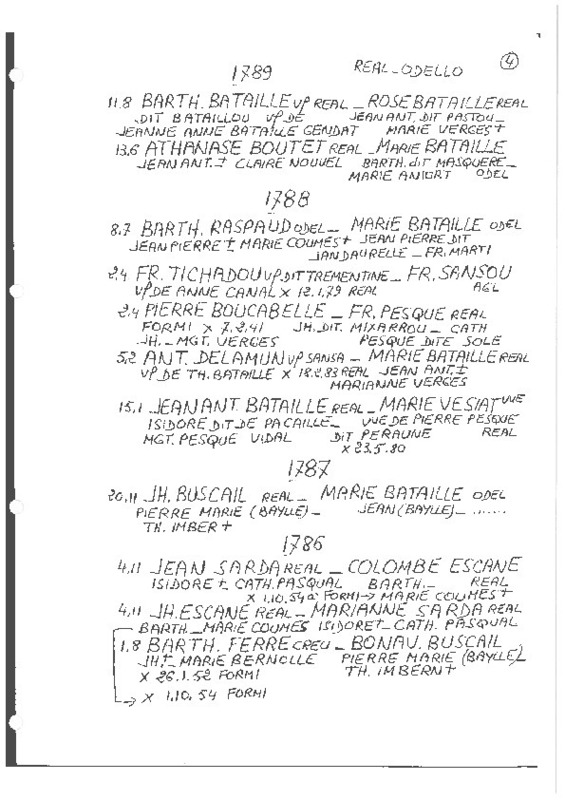 1789 REAL_ODELLO 4
11.8 BARTH. BATAILLE Vf REAL _ ROSE BATAILLE REAL
DIT BATAILLOU Vf DE JEAN ANT. DIT PASTOU_
JEANNE ANNE BATAILLE GENDAT MARIE VERGES+
13.6 ATHANASE BOUTET REAL _ MARIE BATAILLE
JEAN ANT.+ CLAIRE NOUVEL BARTH. DIT MASQUERE_
MARIE ANIORT ODEL
1788
8.7 BARTH. RASPAUD ODEL_ MARIE BATAILLE ODEL
JEAN PIERRE+ MARIE COUMES+ JEAN PIERRE DIT
JANDAURELLE _ FR. MARTI
24 FR. TICHADOU Vf DIT TREMENTINE_ FR. SANSOU
Vf DE ANNE CANAL X 12.1.79 REAL AGL
2.4 PIERRE BOUCABELLE _ FR. PESQUE REAL
FORMI X 7.2.41 JH. DIT. MIXARROU_ CATH
JH._ MGT. VERGES PESQUE DITE SOLE
5.2 ANT. DELAMUN Vf SANSA _ MARIE BATAILLE REAL
Vf DE TH. BATAILLE X 18.2.83 REAL JEAN ANT.+
MARIANNE VERGES
15.1 JEAN ANT. BATAILLE REAL _ MARIE VESIAT VVE
ISIDORE DIT DE PACAILLE_ VVE DE PIERRE PESQUE
MGT. PESQUE VIDAL DIT PERAUNE REAL
X 23.5.80
1787
20.11 JH. BUSCAIL REAL_ MARIE BATAILLE ODEL
PIERRE MARIE (BAYLLE)_ JEAN (BAYLLE)_ ......
TH. IMBERT +
1786
4.11 JEAN SARDA REAL _ COLOMBE ESCANE
ISIDORE+ CATH. PASQUAL BARTH._ REAL
X 1.10.54 a FORMI→ MARIE COUMES+
4.11 JH. ESCANE REAL_ MARIANNE SARDA REAL
BARTH._ MARIE COUMES ISIDORE+ CATH. PASQUAL
1.8 BARTH. FERRE CREU _ BONAV. BUSCAIL
JH+ MARIE BERNOLLE PIERRE MARIE (BAYLLE)_
X 26.1.52 FORMI TH. IMBERN+
→ X 1.10.54 FORMI